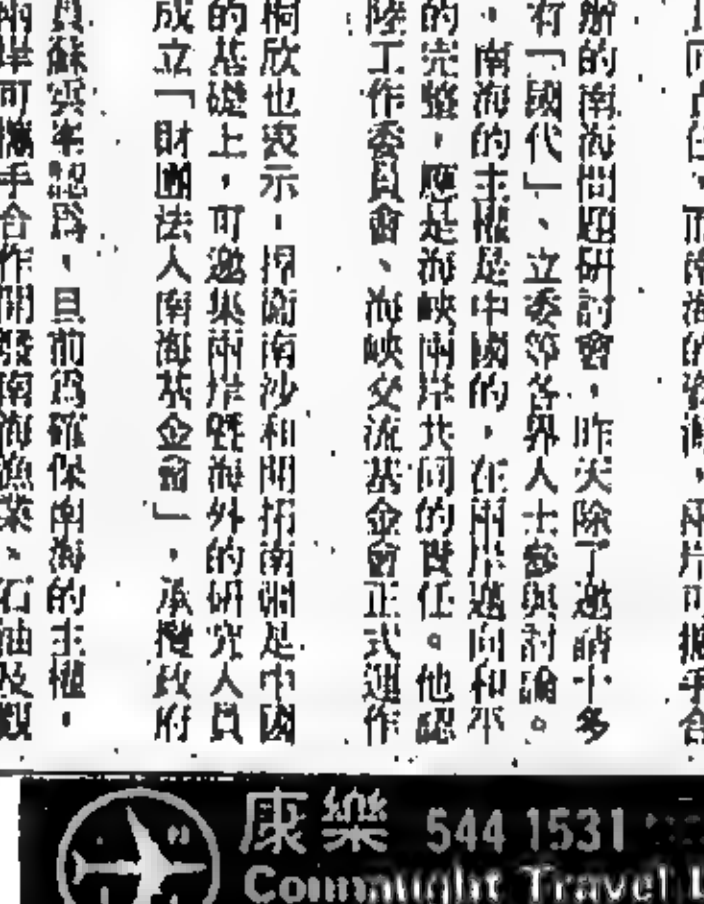 而南海的資源，兩岸可攜手合
辦的南海問題研討會，昨天除了邀請十多
有「國代」、立委等各界人士參與討論。
，南海的主權是中國的，在兩岸邁向和平
的完整，應是海峽兩岸共同的責任。他認
陸工作委員會、海峽交流基金會正式運作
桐欣也表示，捍衛南沙和開拓南疆是中國
的基礎上，可邀集兩岸暨海外的研究人員
成立「財團法人南海基金會」，承攬政府
員蘇雲年認為，目前為確保南海的主權，
兩岸可攜手合作開發南海漁業、石油及觀
康樂 544 1531
Connaught Travel